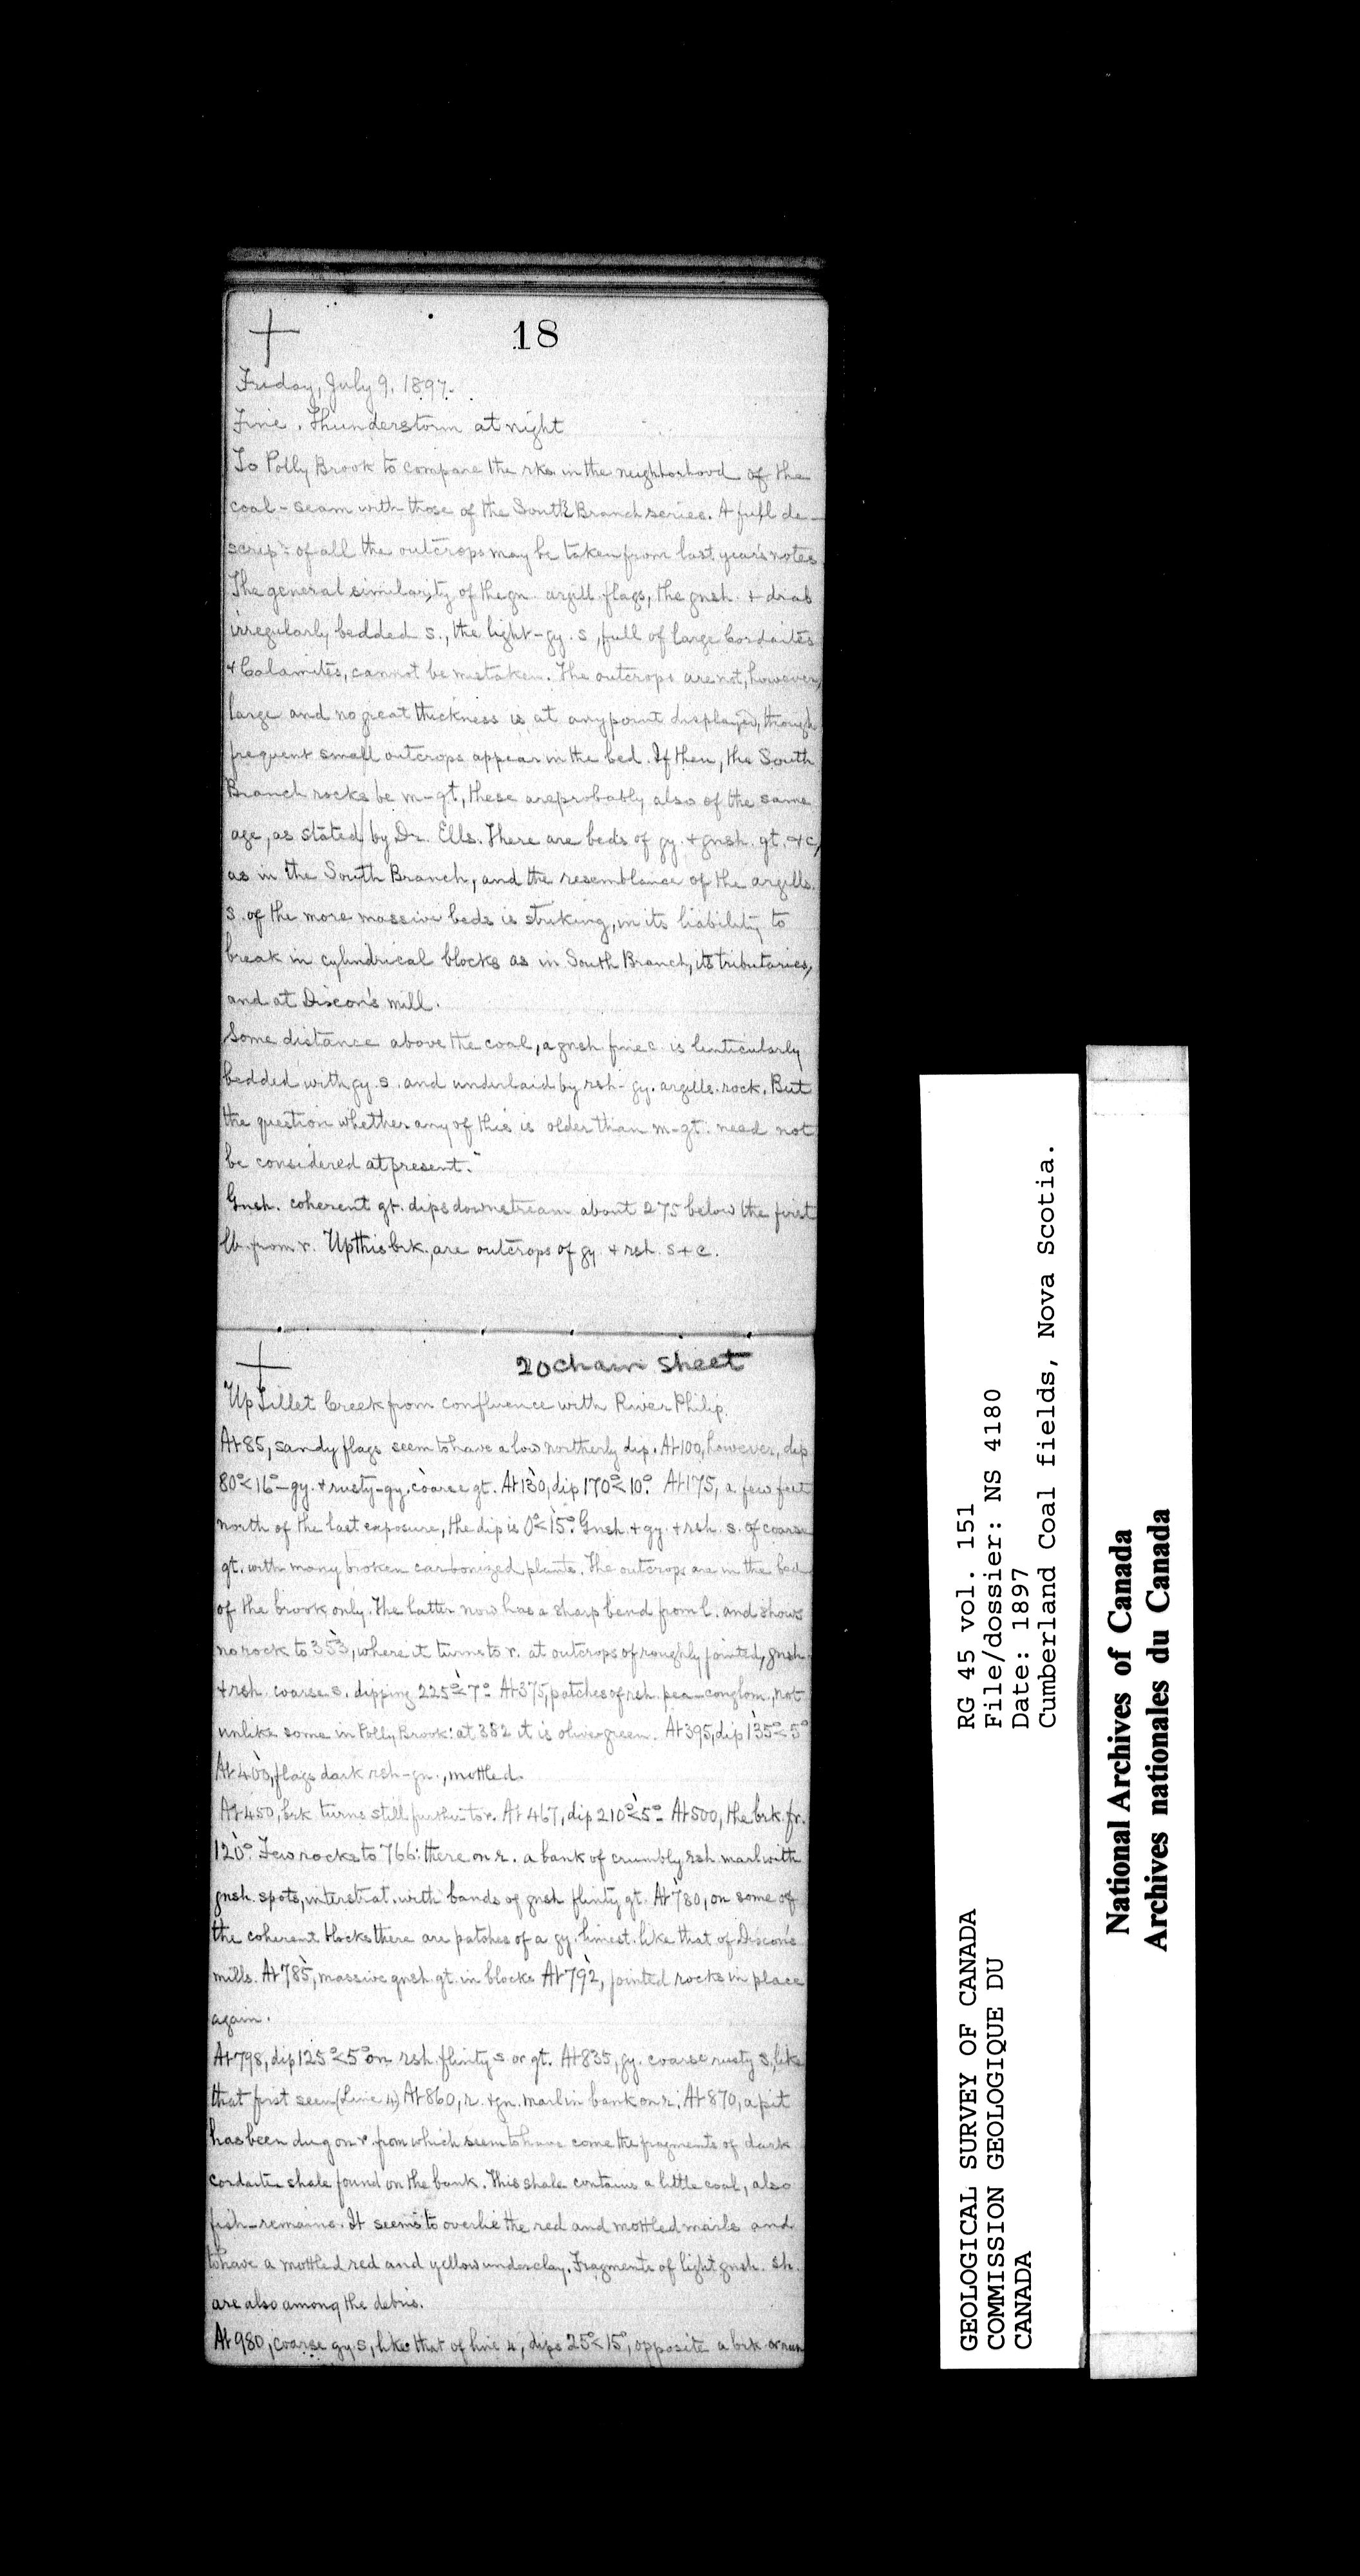 18
Friday, July 9, 1897.
Fine. Thunderstorm at night
To Polly Brook to compare the rks in the neighborhood of the
coal-seam with those of the South Branch series. A full de-
scripn of all the outcrops may be taken from last year's notes.
The general similarity of the gn. argill. flags, the gnsh. + drab
irregularly bedded s., the light-gy. s., full of large Cordaites
+ Calamites, cannot be mistaken. The outcrops are not, however,
large and no great thickness is at any point displayed, though
frequent small outcrops appear in the bed. If then, the South
Branch rocks be m-gt, these are probably also of the same
age, as stated by Dr. Ells. There are beds of gy. + gnsh. gt. + c,
as in the South Branch, and the resemblance of the argills.
s. of the more massive beds is striking, in its liability to
break in cylindrical blocks as in South Branch, its tributaries,
and at Dixon's mill.
Some distance above the coal, a gnsh. fine c. is lenticularly
bedded with gy. s. and underlaid by rsh-gy. argills. rock. But
the question whether any of this is older than m-gt. need not
be considered at present."
Gnsh. coherent gt. dips downstream about 275 below the first
lb. from r. Up this brk, are outcrops of gy. + rsh. s + c.
20 chain sheet
Up Tillet Creek from confluence with River Philip.
At 85, sandy flags seem to have a low northerly dip. At 100, however, dip
80°<16°-gy. + rusty-gy. coarse gt. At 130, dip 170°<10°. At 175, a few feet
north of the last exposure, the dip is 0°<15°. Gnsh. + gy. + rsh. s. of coarse
gt. with many broken carbonized plants. The outcrops are in the bed
of the brook only. The latter now has a sharp bend from l. and shows
no rock to 353, where it turns to r. at outcrops of roughly jointed, gnsh.
+ rsh. coarse s. dipping 225°<7°. At 375, patches of rsh. pea-conglom., not
unlike some in Polly Brook: at 382 it is olive-green. At 395, dip 135°<5°
At 403, flags dark rsh-gn., mottled.
At 450, brk turns still further to r. At 467, dip 210°<5°. At 500, the brk. fr.
120°. Few rocks to 766: there on r. a bank of crumbly rsh. marl with
gnsh. spots, interstrat. with bands of gnsh flinty gt. At 780, on some of
the coherent blocks there are patches of a gy. limest. like that of Dixon's
mills. At 785, massive gnsh. gt. in blocks. At 792, jointed rocks in place
again.
At 798, dip 125°<5° on rsh. flinty s or gt. At 835, gy. coarse rusty s, like
that first seen (Line 4). At 860, r. + gn. marl in bank on r. At 870, a pit
has been dug on r. from which seem to have come the fragments of dark
cordaite shale found on the bank. This shale contains a little coal, also
fish-remains. It seems to overlie the red and mottled marls and
to have a mottled red and yellow underclay. Fragments of light gnsh. sh.
are also among the debris.
At 980, coarse gy. s, like that of line 4, dips 25°<15°, opposite a brk or run
GEOLOGICAL SURVEY OF CANADA
COMMISSION GEOLOGIQUE DU
CANADA
RG 45 vol. 151
File/dossier: NS 4180
Date: 1897
Cumberland Coal fields, Nova Scotia.
National Archives of Canada
Archives nationales du Canada